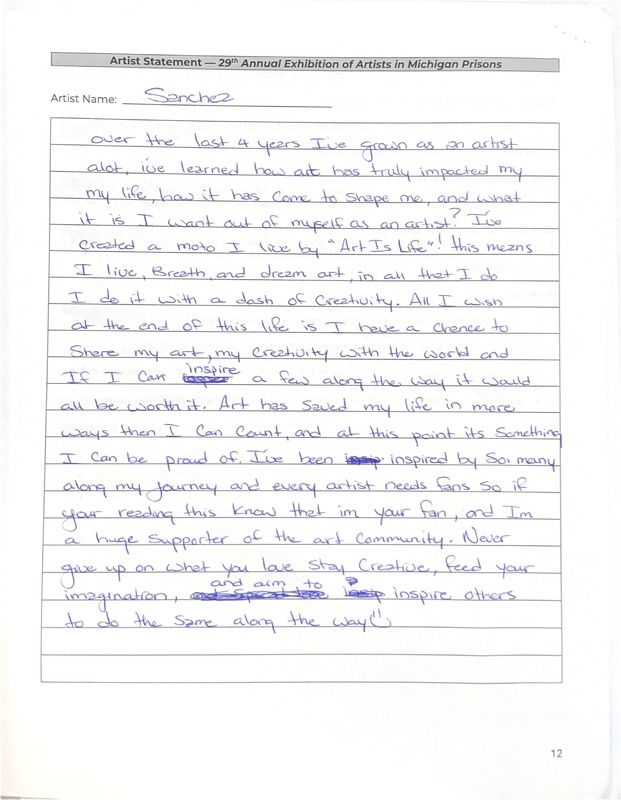 Artist Statement — 29th Annual Exhibition of Artists in Michigan Prisons
Artist Name: Sanchez
over the last 4 years I've grown as an artist
alot, i've learned how art has truly impacted my
my life, how it has come to shape me, and what
it is I want out of myself as an artist? I've
Created a moto I live by "Art Is Life"! this means
I live, Breath, and dream art, in all that I do
I do it with a dash of Creativity. All I wish
at the end of this life is I have a chance to
Share my art, my Creativity with the world and
If I Can inspire a few along the way it would
all be worth it. Art has Saved my life in more
ways then I Can Count, and at this point its Something
I Can be proud of. I've been inspired by So many
along my Journey and every artist needs fans So if
your reading this Know that im your fan, and I'm
a huge Supporter of the art Community. Never
give up on what you love Stay Creative, feed your
imagination, and aim to inspire others
to do the Same along the way
12